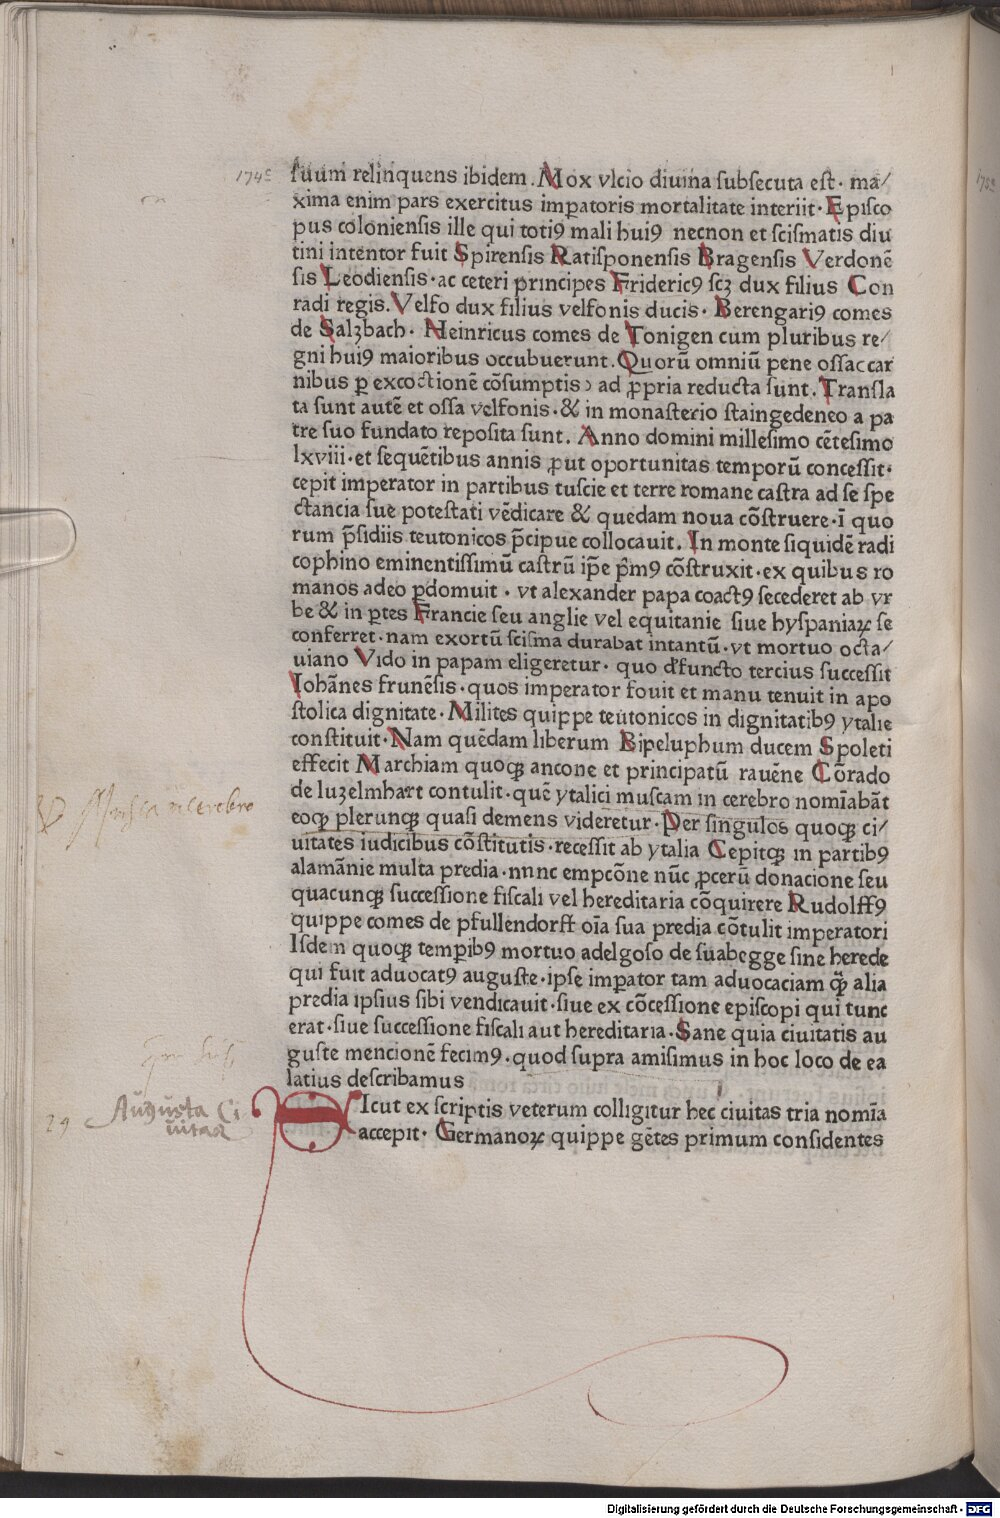 suum relinquens ibidem. Mox vlcio diuina subsecuta est· ma/
xima enim pars exercitus imperatoris mortalitate interiit· Episco
pus coloniensis ille qui totiꝰ mali huiꝰ necnon et scismatis diu
tini intentor fuit Spirensis Ratisponensis Bragensis Verdonē
sis Leodiensis· ac ceteri principes Fridericꝰ scꝫ dux filius Con
radi regis. Velfo dux filius velfonis ducis· Berengariꝰ comes
de Salzbach· Heinricus comes de Tonigen cum pluribus re/
gni huiꝰ maioribus occubuerunt. Quorū omniū pene ossa c car
nibus ꝑ excoctionē cōsumptis ad ꝓpria reducta sunt. Transla
ta sunt autē et ossa velfonis· & in monasterio staingedeneo a pa
tre suo fundato reposita sunt. Anno domini millesimo cētesimo
lxviii· et sequētibus annis ꝓut oportunitas temporū concessit·
cepit imperator in partibus tuscie et terre romane castra ad se spe
ctancia sue potestati vēdicare & quedam noua cōstruere· ī quo
rum p̄sidiis teutonicos p̄cipue collocauit. In monte siquidē radi
cophino eminentissimū castrū ip̄e p̄mꝰ cōstruxit· ex quibus ro
manos adeo ꝑdomuit· vt alexander papa coactꝰ secederet ab vr
be & in ꝑtes Francie seu anglie vel equitanie siue hyspaniaꝝ se
conferret· nam exortū scisma durabat intantū· vt mortuo octa/
uiano Vido in papam eligeretur· quo d̄functo tercius successit
Iohānes frunēsis· quos imperator fouit et manu tenuit in apo
stolica dignitate· Milites quippe teutonicos in dignitatibꝰ ytalie
constituit· Nam quēdam liberum Bipeluphum ducem Spoleti
effecit Marchiam quoqꝫ ancone et principatū rauēne Cōrado
de luzelmhart contulit· quē ytalici muscam in cerebro nomīabāt
eoqꝫ plerunqꝫ quasi demens videretur· Per singulos quoqꝫ ci/
uitates iudicibus cōstitutis· recessit ab ytalia Cepitqꝫ in partibꝰ
alamānie multa predia· nunc empcōne nūc ꝓcerū donacione seu
quacunqꝫ successione fiscali vel hereditaria cōquirere Rudolffꝰ
quippe comes de pfullendorff oīa sua predia cōtulit imperatori
Isdem quoqꝫ temꝑibꝰ mortuo adelgoso de suabegge sine herede
qui fuit aduocatꝰ auguste· ipse imꝑator tam aduocaciam qꝫ̄ alia
predia ipsius sibi vendicauit· siue ex cōcessione episcopi qui tunc
erat· siue successione fiscali aut hereditaria· Sane quia ciuitatis au
guste mencionē fecimꝰ· quod supra amisimus in hoc loco de ea
latius describamus
SIcut ex scriptis veterum colligitur hec ciuitas tria nomīa
accepit· Germanoꝝ quippe gētes primum considentes
174c
Musca in cerebro
Augusta Ci
uitas
29
Digitalisierung gefördert durch die Deutsche Forschungsgemeinschaft - DFG